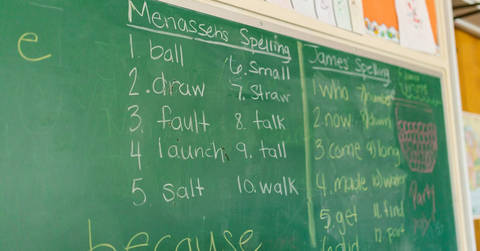 e
Menasseh's Spelling
1. ball 6. Small
2. draw 7. Straw
3. fault 8. talk
4 launch 9. tall
5. salt 10. walk
because
James' Spelling
1 who 7)number
2. now 8)down
3. come 9)long
4. made 10)water
5. get 11. find
6.
Party